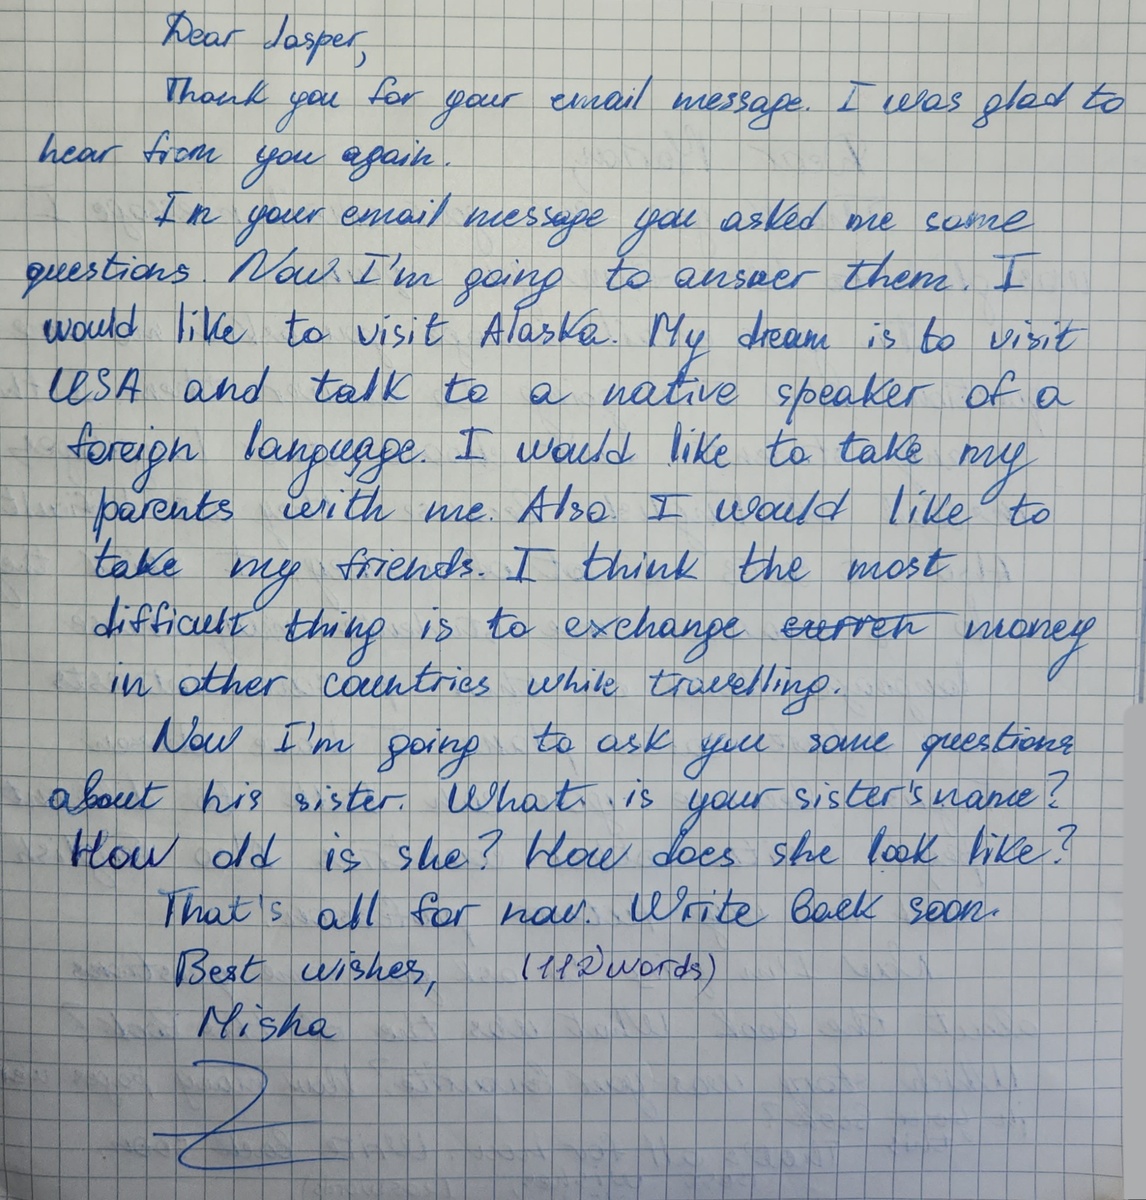 Dear Jasper,
Thank you for your email message. I was glad to
hear from you again.
In your email message you asked me some
questions. Now I'm going to answer them. I
would like to visit Alaska. My dream is to visit
USA and talk to a native speaker of a
foreign language. I would like to take my
parents with me. Also I would like to
take my friends. I think the most
difficult thing is to exchange curren money
in other countries while travelling.
Now I'm going to ask you some questions
about his sister. What is your sister's name?
How old is she? How does she look like?
That's all for now. Write back soon.
Best wishes, (112 words)
Misha